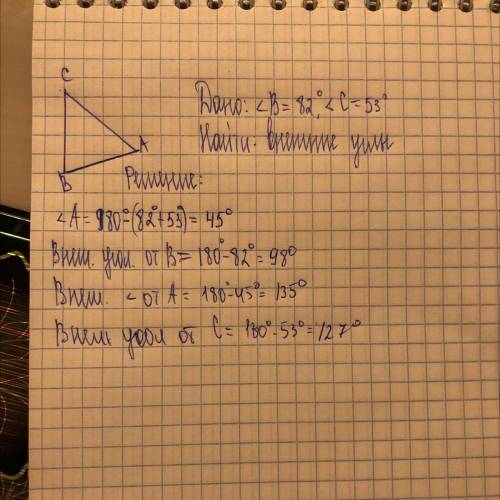 C
A
B
Дано: ∠B = 82°, ∠C = 53°
Найти: внешние углы
Решение:
∠A = 180° - (82° + 53°) = 45°
Внеш. угол. от B = 180° - 82° = 98°
Внеш. ∠ от A = 180° - 45° = 135°
Внеш угол от C = 180° - 53° = 127°